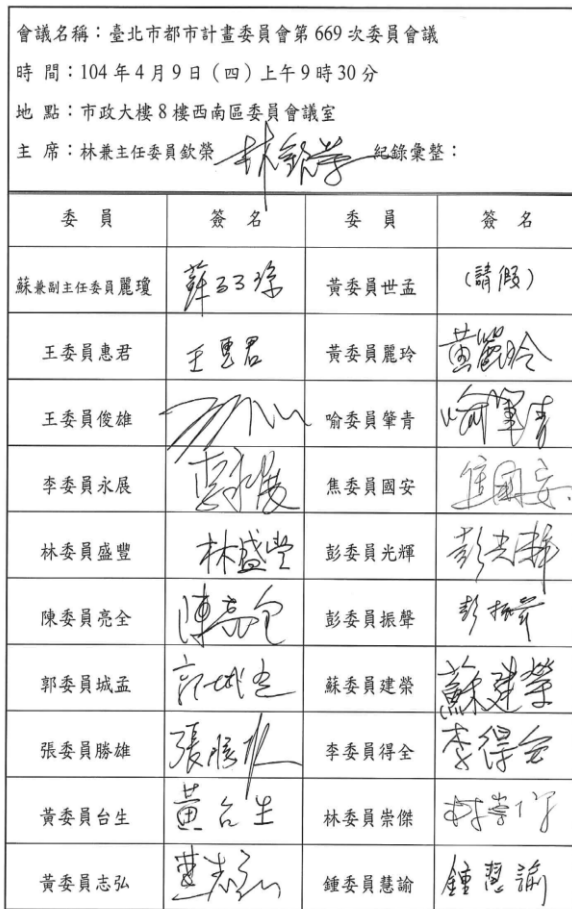 會議名稱：臺北市都市計畫委員會第 669 次委員會議
時 間：104 年 4 月 9 日（四）上午 9 時 30 分
地 點：市政大樓 8 樓西南區委員會議室
主 席：林兼主任委員欽榮 林欽榮 紀錄彙整：
委 員 簽 名 委 員 簽 名
蘇兼副主任委員麗瓊 黃委員世孟 (請假)
王委員惠君 王惠君 黃委員麗玲 黃麗玲
王委員俊雄 喻委員肇青 喻肇青
李委員永展 李永展 焦委員國安 焦國安
林委員盛豐 林盛豐 彭委員光輝 彭光輝
陳委員亮全 陳亮全 彭委員振聲 彭振聲
郭委員城孟 郭城孟 蘇委員建榮 蘇建榮
張委員勝雄 張勝雄 李委員得全 李得全
黃委員台生 黃台生 林委員崇傑 林崇傑
黃委員志弘 黃志弘 鍾委員慧諭 鍾慧諭